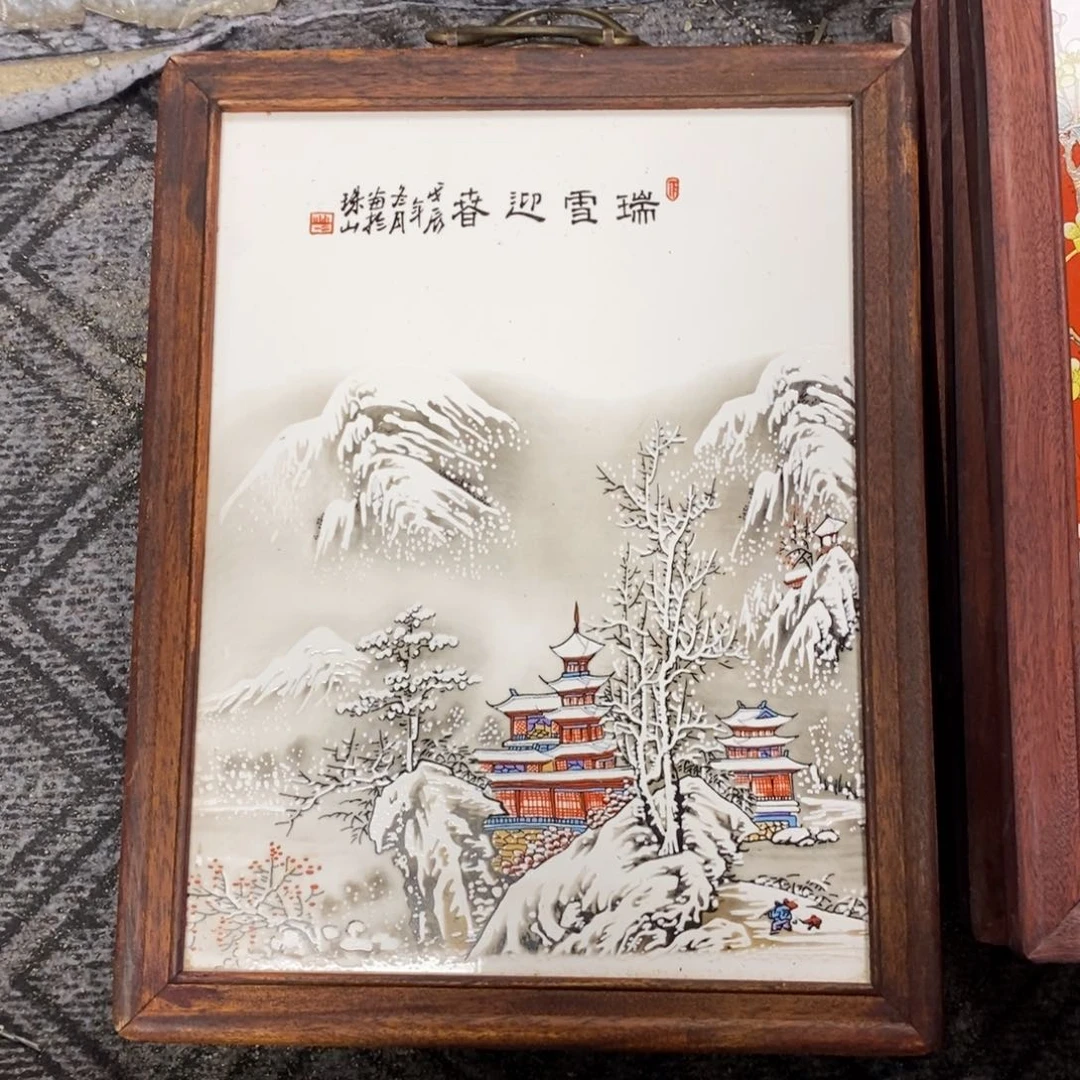 瑞雪迎春
戊辰
年
冬月
画於
珠山